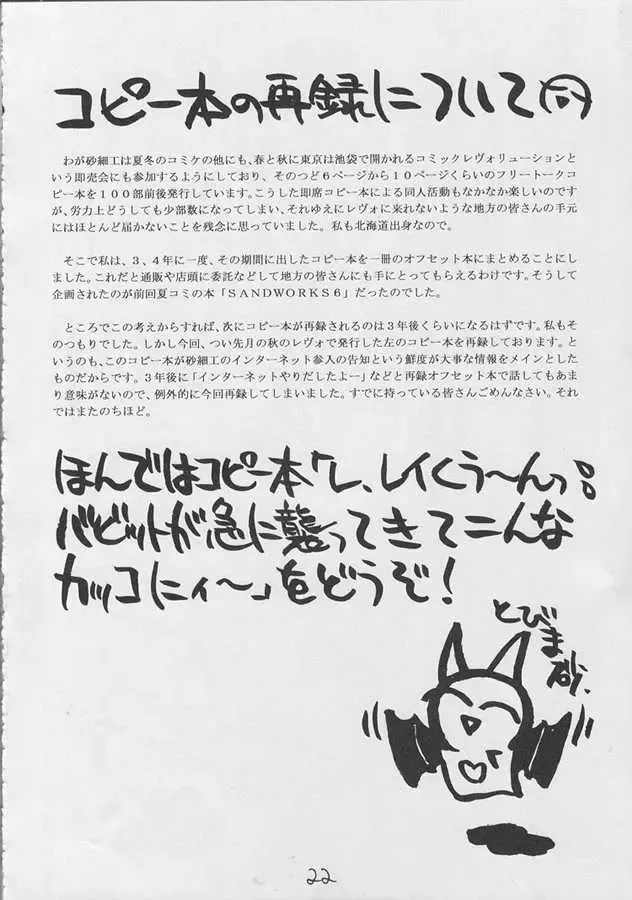 コピー本の再録について
わが砂細工は夏冬のコミケの他にも、春と秋に東京は池袋で開かれるコミックレヴォリューションと
いう即売会にも参加するようにしており、そのつど６ページから１０ページくらいのフリートークコ
ピー本を１００部前後発行しています。こうした即席コピー本による同人活動もなかなか楽しいのです
が、労力上どうしても少部数になってしまい、それゆえにレヴォに来れないような地方の皆さんの手元
にはほとんど届かないことを残念に思っていました。私も北海道出身なので。
そこで私は、３、４年に一度、その期間に出したコピー本を一冊のオフセット本にまとめることにし
ました。これだと通販や店頭に委託などして地方の皆さんにも手にとってもらえるわけです。そうして
企画されたのが前回夏コミの本「ＳＡＮＤＷＯＲＫＳ６」だったのでした。
ところでこの考えからすれば、次にコピー本が再録されるのは３年後くらいになるはずです。私もそ
のつもりでした。しかし今回、つい先月の秋のレヴォで発行した左のコピー本を再録しております。と
いうのも、このコピー本が砂細工のインターネット参入の告知という鮮度が大事な情報をメインとした
ものだからです。３年後に「インターネットやりだしたよー」などと再録オフセット本で話してもあま
り意味がないので、例外的に今回再録してしまいました。すでに持っている皆さんごめんなさい。それ
ではまたのちほど。
ほんではコピー本「レ、レイくぅ〜んっ
バビットが急に襲ってきてこんな
カッコにィ〜」をどうぞ！
とびま砂、
22